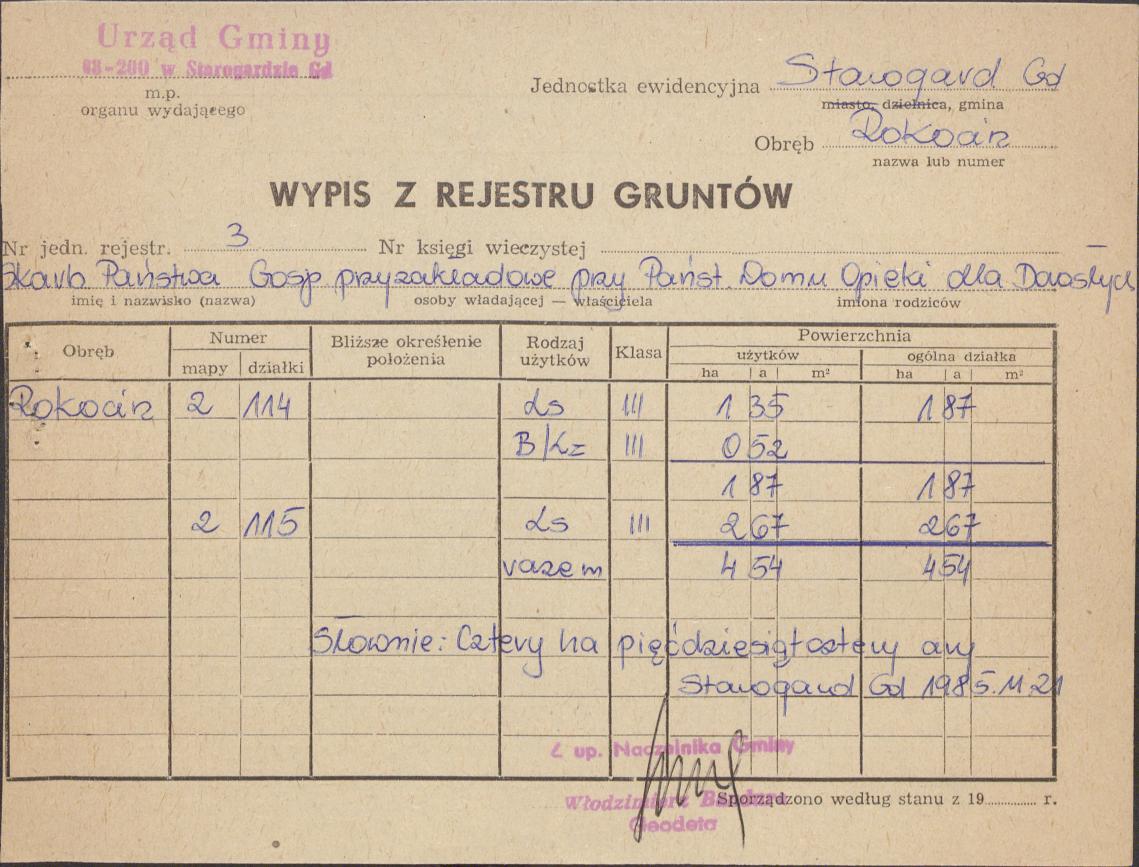 Urząd Gminy
83-200 w Starogardzie Gd
m.p.
organu wydającego
Jednostka ewidencyjna Starogard Gd
miasto, dzielnica, gmina
Obręb Rokocin
nazwa lub numer
WYPIS Z REJESTRU GRUNTÓW
Nr jedn. rejestr. 3 Nr księgi wieczystej —
Skarb Państwa Gosp przyzakładowe przy Państ. Domu Opieki dla Dorosłych
imię i nazwisko (nazwa) osoby władającej — właściciela imiona rodziców
Obręb Numer Bliższe określenie położenia Rodzaj użytków Klasa Powierzchnia
mapy działki użytków ogólna działka
ha a m² ha a m²
Rokocin 2 114 Ls III 1 35 1 87
B/Lz III 0 52
1 87 1 87
2 115 Ls III 2 67 2 67
razem 4 54 4 54
Słownie: Cztery ha pięćdziesiąt cztery ary
Starogard Gd 1985.11.21
Z up. Naczelnika Gminy
Włodzimierz
Geodeta
Sporządzono według stanu z 19 r.